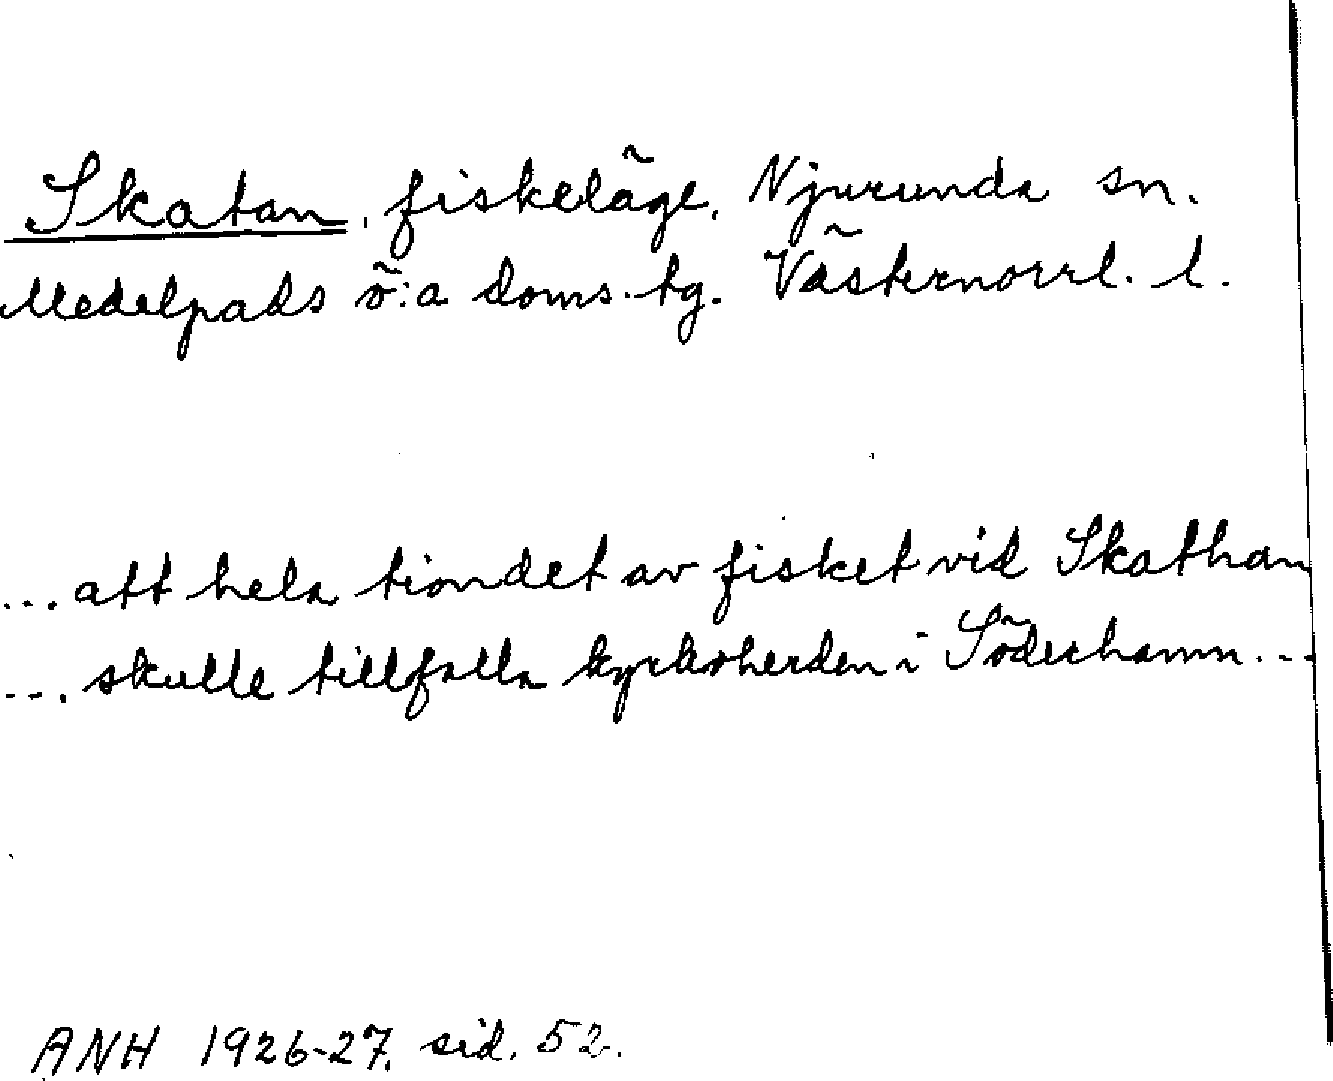 Skatan, fiskeläge, Njurunda sn.
Medelpads ö:a doms.tg. Västernorrl. l.
... att hela tiondet av fisket vid Skathan
... skulle tillfalla kyrkoherden i Söderhamn...
ANH 1926-27, sid. 52.